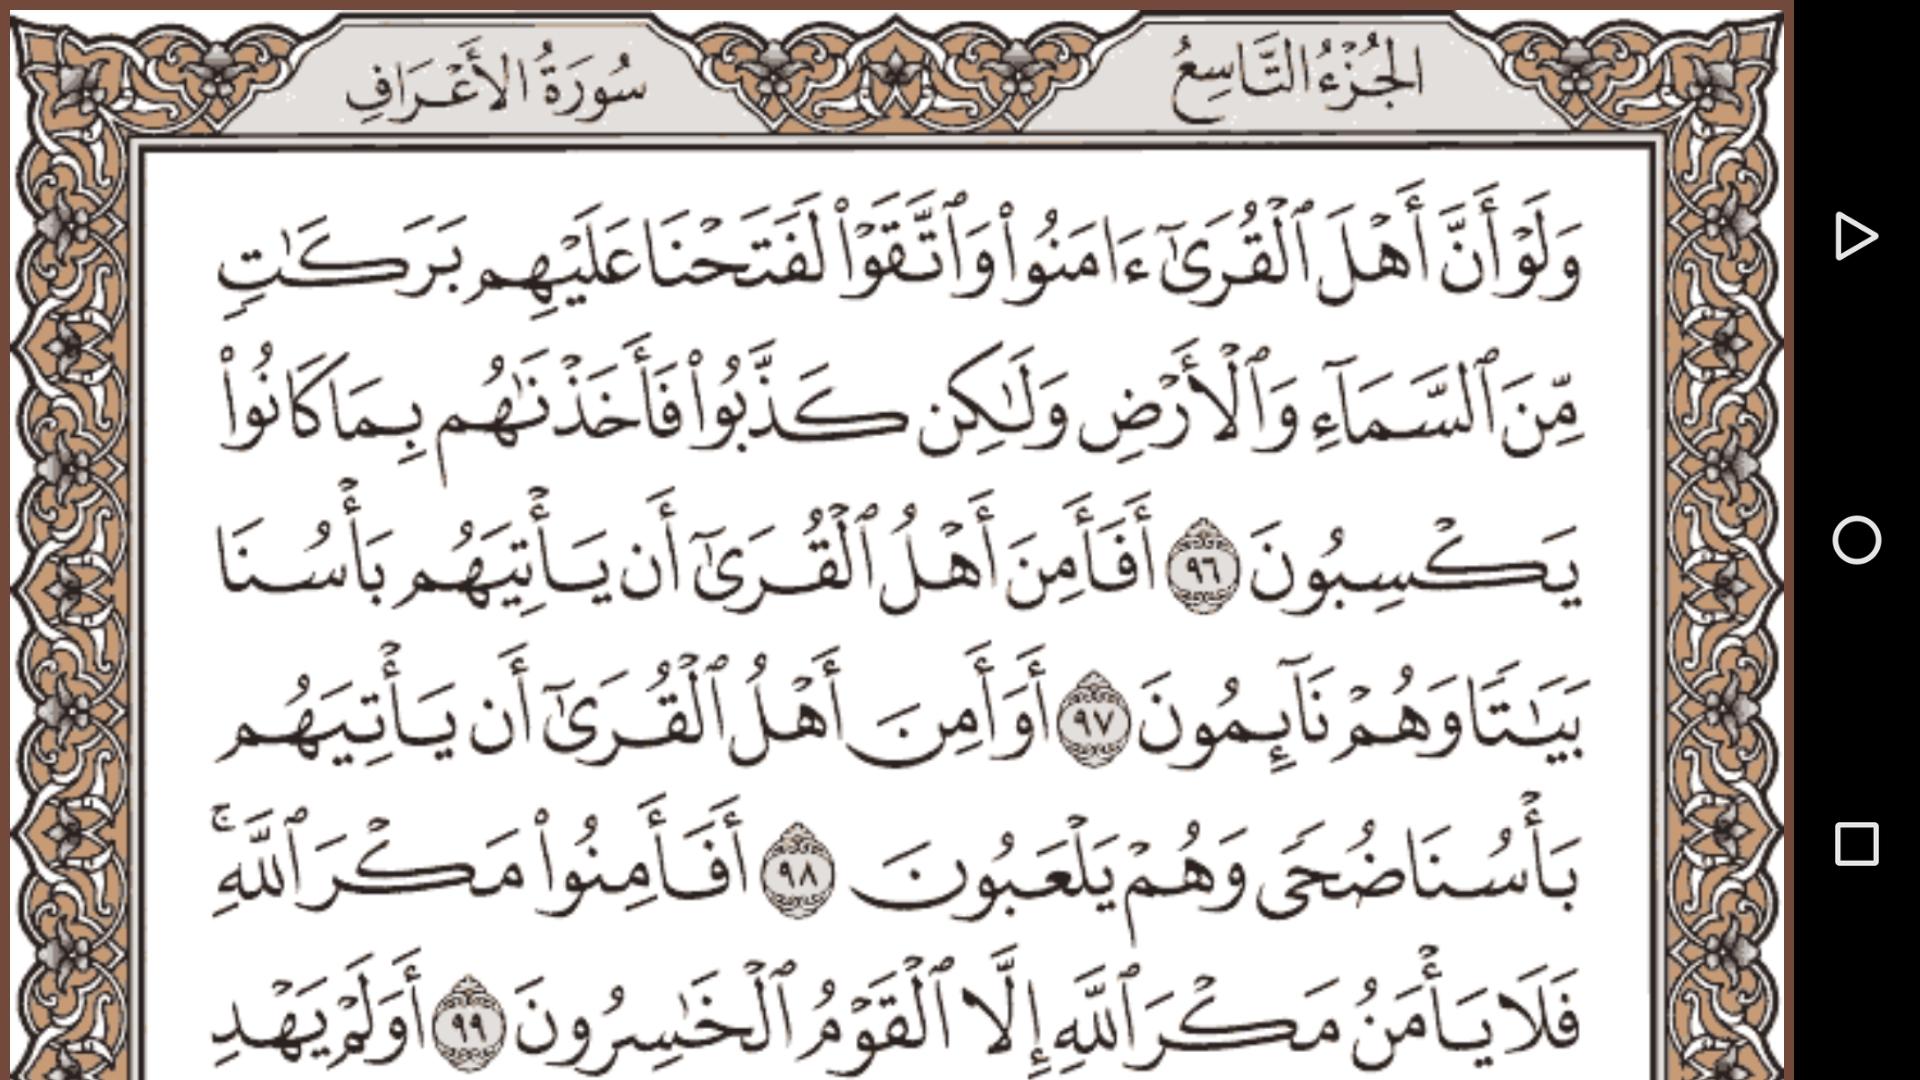 الجُزْءُ التَّاسِعُ
سُورَةُ الأَعْرَافِ
وَلَوْ أَنَّ أَهْلَ ٱلْقُرَىٰٓ ءَامَنُوا۟ وَٱتَّقَوْا۟ لَفَتَحْنَا عَلَيْهِم بَرَكَٰتٍ
مِّنَ ٱلسَّمَآءِ وَٱلْأَرْضِ وَلَٰكِن كَذَّبُوا۟ فَأَخَذْنَٰهُم بِمَا كَانُوا۟
يَكْسِبُونَ ٩٦ أَفَأَمِنَ أَهْلُ ٱلْقُرَىٰٓ أَن يَأْتِيَهُم بَأْسُنَا
بَيَٰتًا وَهُمْ نَآئِمُونَ ٩٧ أَوَأَمِنَ أَهْلُ ٱلْقُرَىٰٓ أَن يَأْتِيَهُم
بَأْسُنَا ضُحًى وَهُمْ يَلْعَبُونَ ٩٨ أَفَأَمِنُوا۟ مَكْرَ ٱللَّهِ ۚ
فَلَا يَأْمَنُ مَكْرَ ٱللَّهِ إِلَّا ٱلْقَوْمُ ٱلْخَٰسِرُونَ ٩٩ أَوَلَمْ يَهْدِ